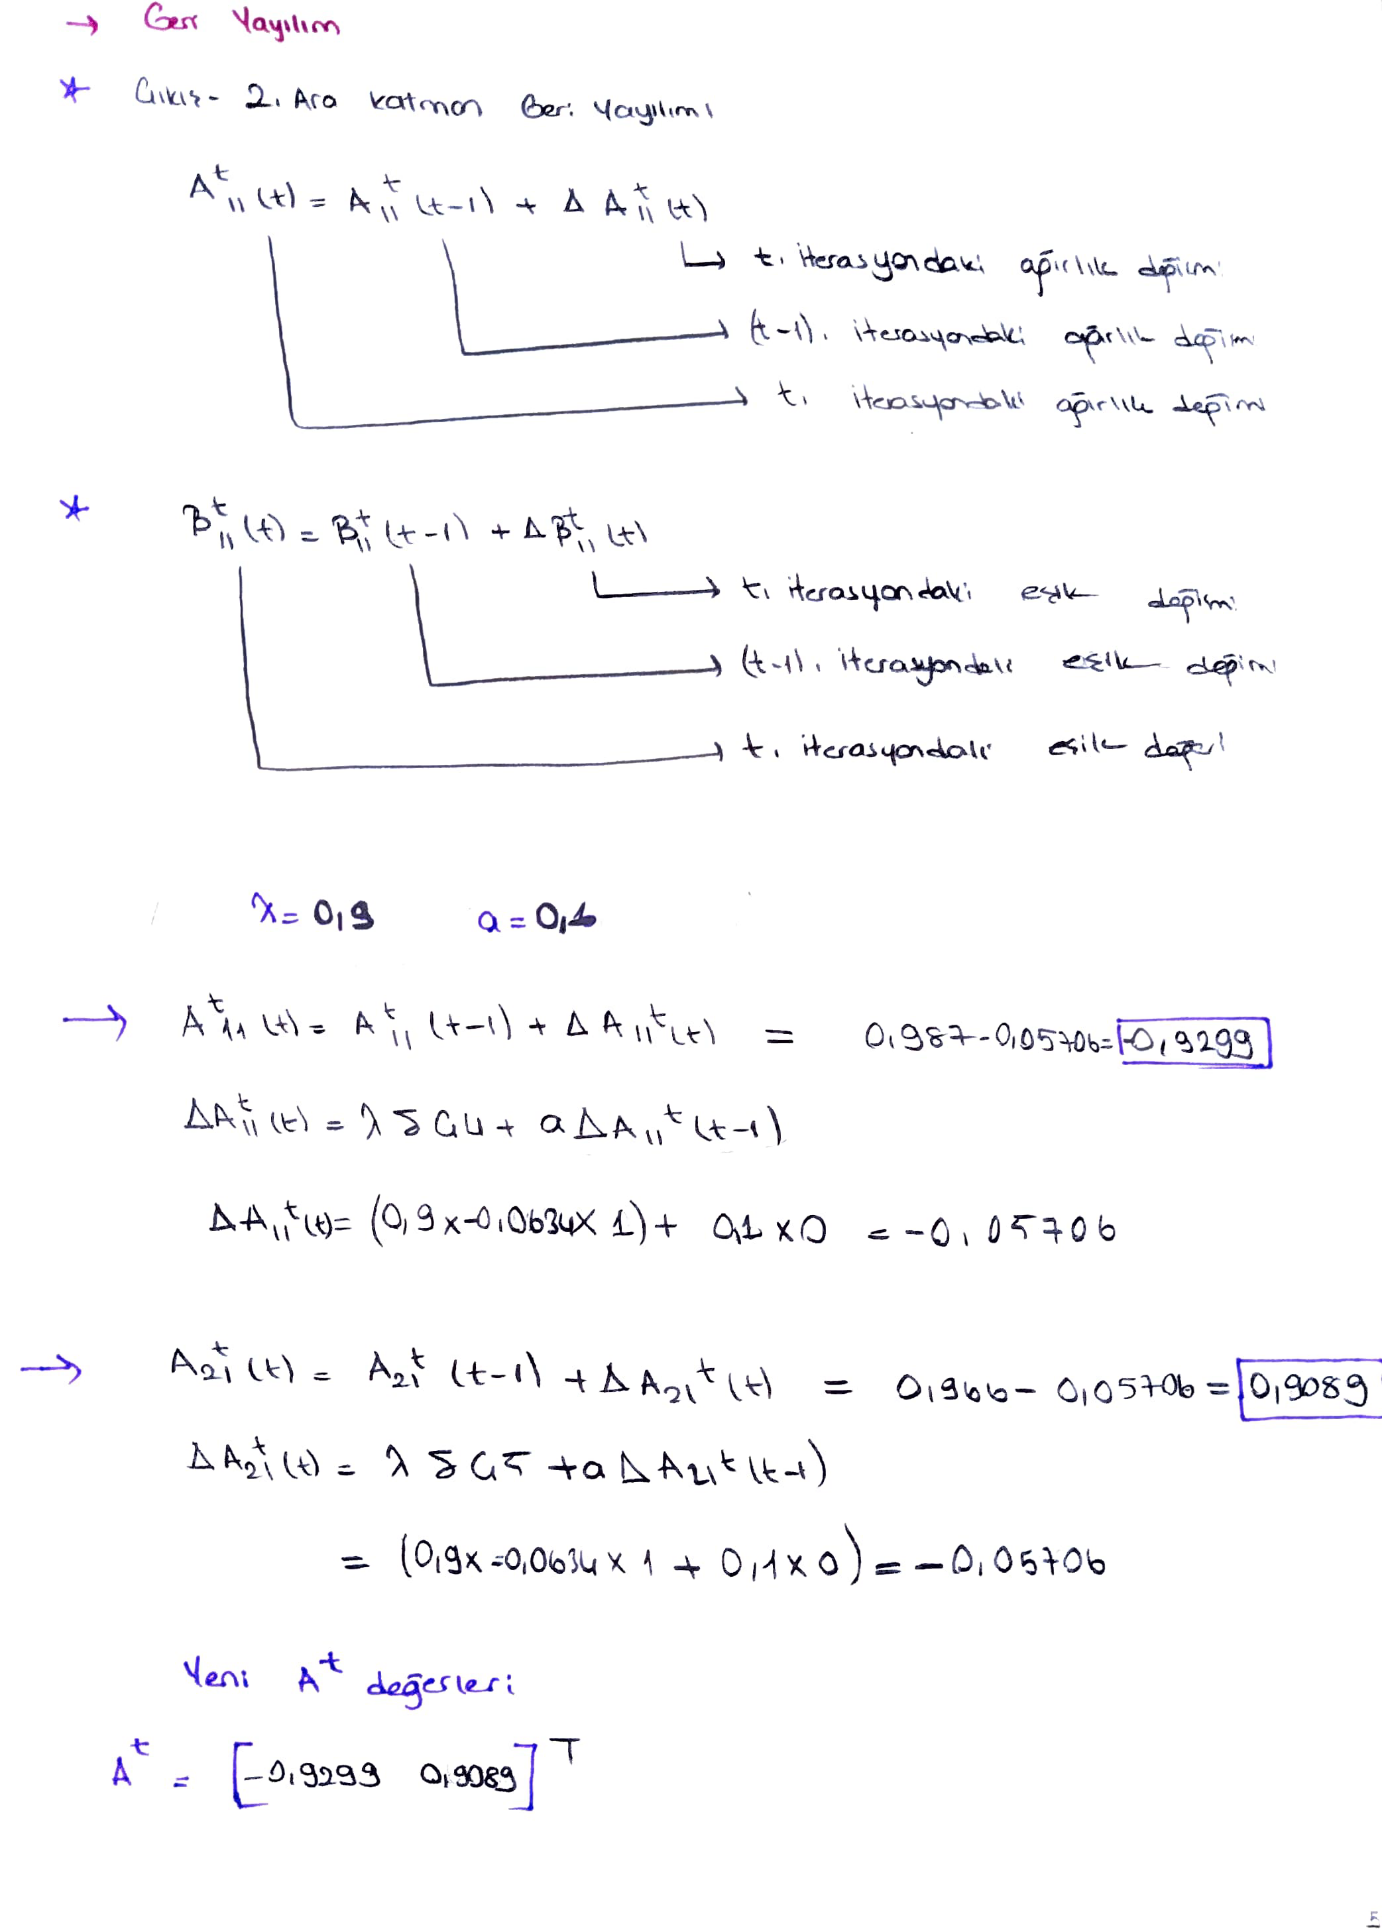 → Geri Yayılım
* Çıkış - 2. Ara katman Geri Yayılımı
A^t_11 (t) = A^t_11 (t-1) + Δ A^t_11 (t)
t. iterasyondaki ağırlık değişimi
(t-1). iterasyondaki ağırlık değişimi
t. iterasyondaki ağırlık değişimi
* B^t_11 (t) = B^t_11 (t-1) + Δ B^t_11 (t)
t. iterasyondaki eşik değişimi
(t-1). iterasyondaki eşik değişimi
t. iterasyondaki eşik değeri
λ = 0,9 a = 0,1
→ A^t_11 (t) = A^t_11 (t-1) + Δ A_11^t (t) = 0,987 - 0,05706 = -0,9299
ΔA^t_11 (t) = λ δ Ç4 + a Δ A_11^t (t-1)
ΔA_11^t (t) = (0,9 x -0,0634 x 1) + 0,1 x 0 = -0,05706
→ A_21^t (t) = A_21^t (t-1) + Δ A_21^t (t) = 0,966 - 0,05706 = 0,9089
Δ A_21^t (t) = λ δ Ç5 + a Δ A_21^t (t-1)
= (0,9 x -0,0634 x 1 + 0,1 x 0) = -0,05706
Yeni A^t değerleri
A^t = [-0,9299 0,9089]^T